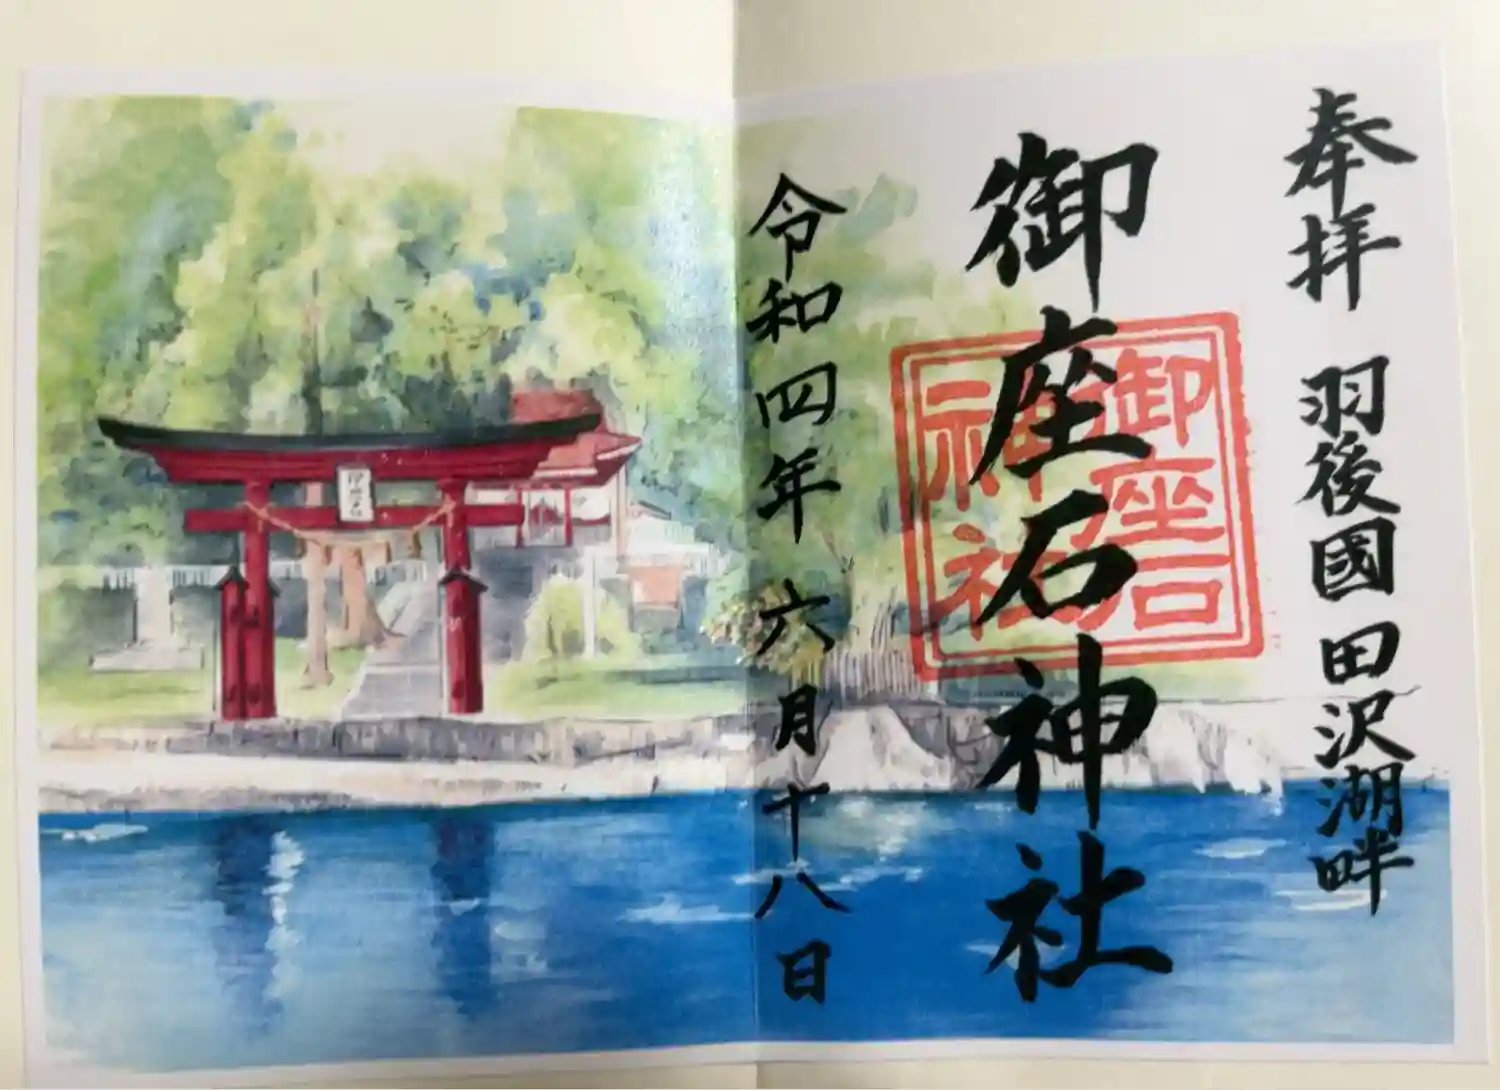 奉拝 羽後國田沢湖畔
御座石神社
御座石
神社
令和四年 六月十八日
御座石